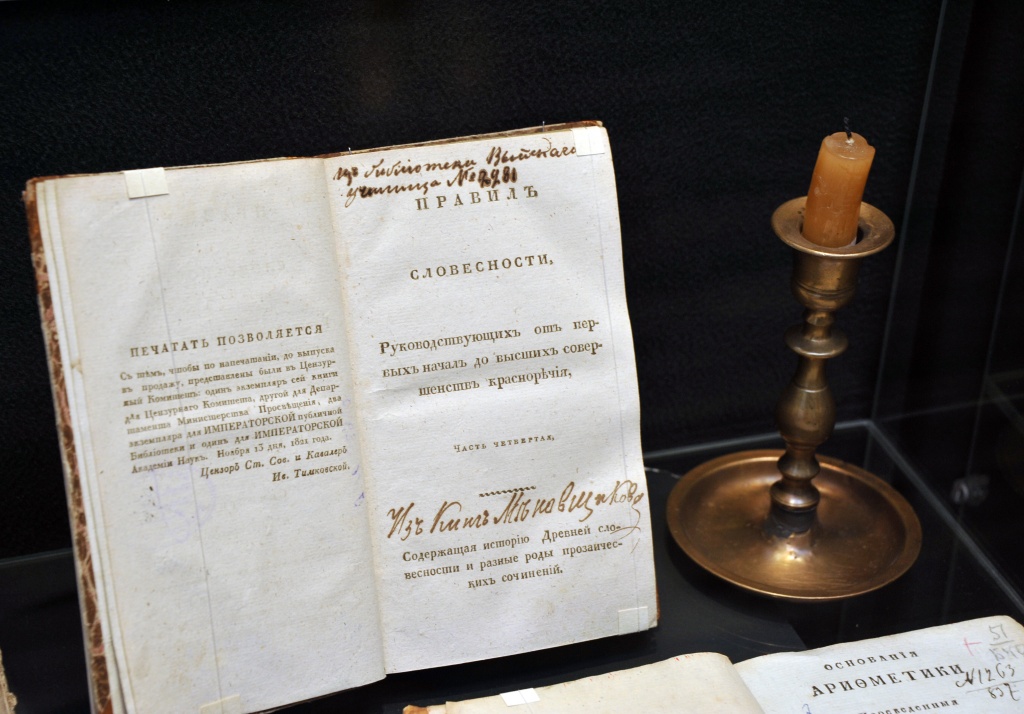 ПЕЧАТАТЬ ПОЗВОЛЯЕТСЯ
Съ тѣмъ, чтобы по напечатаніи, до выпуска
въ продажу, представлены были въ Цензур-
ный Комитетъ: одинъ экземпляръ сей книги
для Цензурнаго Комитета, другой для Депар-
тамента Министерства Просвѣщенія, два
экземпляра для ИМПЕРАТОРСКОЙ публичной
Библіотеки и одинъ для ИМПЕРАТОРСКОЙ
Академіи Наукъ. Ноября 13 дня, 1821 года.
Цензоръ Ст. Сов. и Кавалеръ
Ив. Тимковской.
изъ библіотеки
училища №
ПРАВИЛЪ
СЛОВЕСНОСТИ,
Руководствующихъ отъ пер-
выхъ началъ до высшихъ совер-
шенствъ краснорѣчія,
Часть четвертая,
Изъ Книгъ Мѣновщикова
Содержащая исторію Древней сло-
весности и разные роды прозаичес-
кихъ сочиненій.
ОСНОВАНІЯ
АРИѲМЕТИКИ,
51
№1263